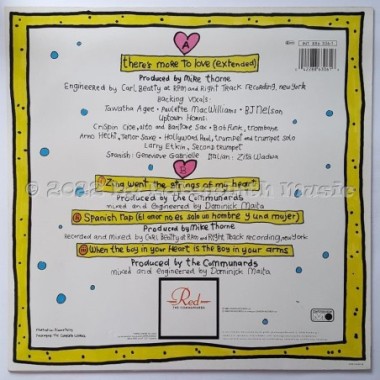 A
there's more to love (extended)
Produced by Mike Thorne
Engineered by Carl Beatty at RPM and Right Track recording, new York
Backing vocals:
Tawatha Agee - Paulette MacWilliams - BJ Nelson
Uptown Horns:
Crispin Cioe, alto and Baritone Sax - Bob Funk, trombone
Arno Hecht, tenor Saxe - Hollywood Paul, trumpet and trumpet solo
Larry Etkin, Second trumpet
Spanish: Genevieve Gabrielle Italian: Zita Wadwa
B
Zing went the strings of my heart
Produced by the Communards
mixed and engineered by Dominick Maita
Spanish rap (El amor no es solo un hombre y una mujer)
Produced by Mike Thorne
Recorded and mixed by Carl Beatty at RPM and Right Track recording, new York
When the boy in your Heart is the Boy in your arms
Produced by the Communards
mixed and engineered by Dominick Maita
Red
THE COMMUNARDS